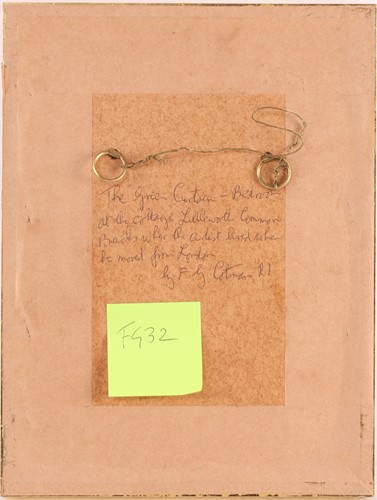 The Green Curtain – Bedroom
at the cottage Littleworth Common
Bucks where the artist lived when
he moved from London
by F. G. Cotman RI
FG32